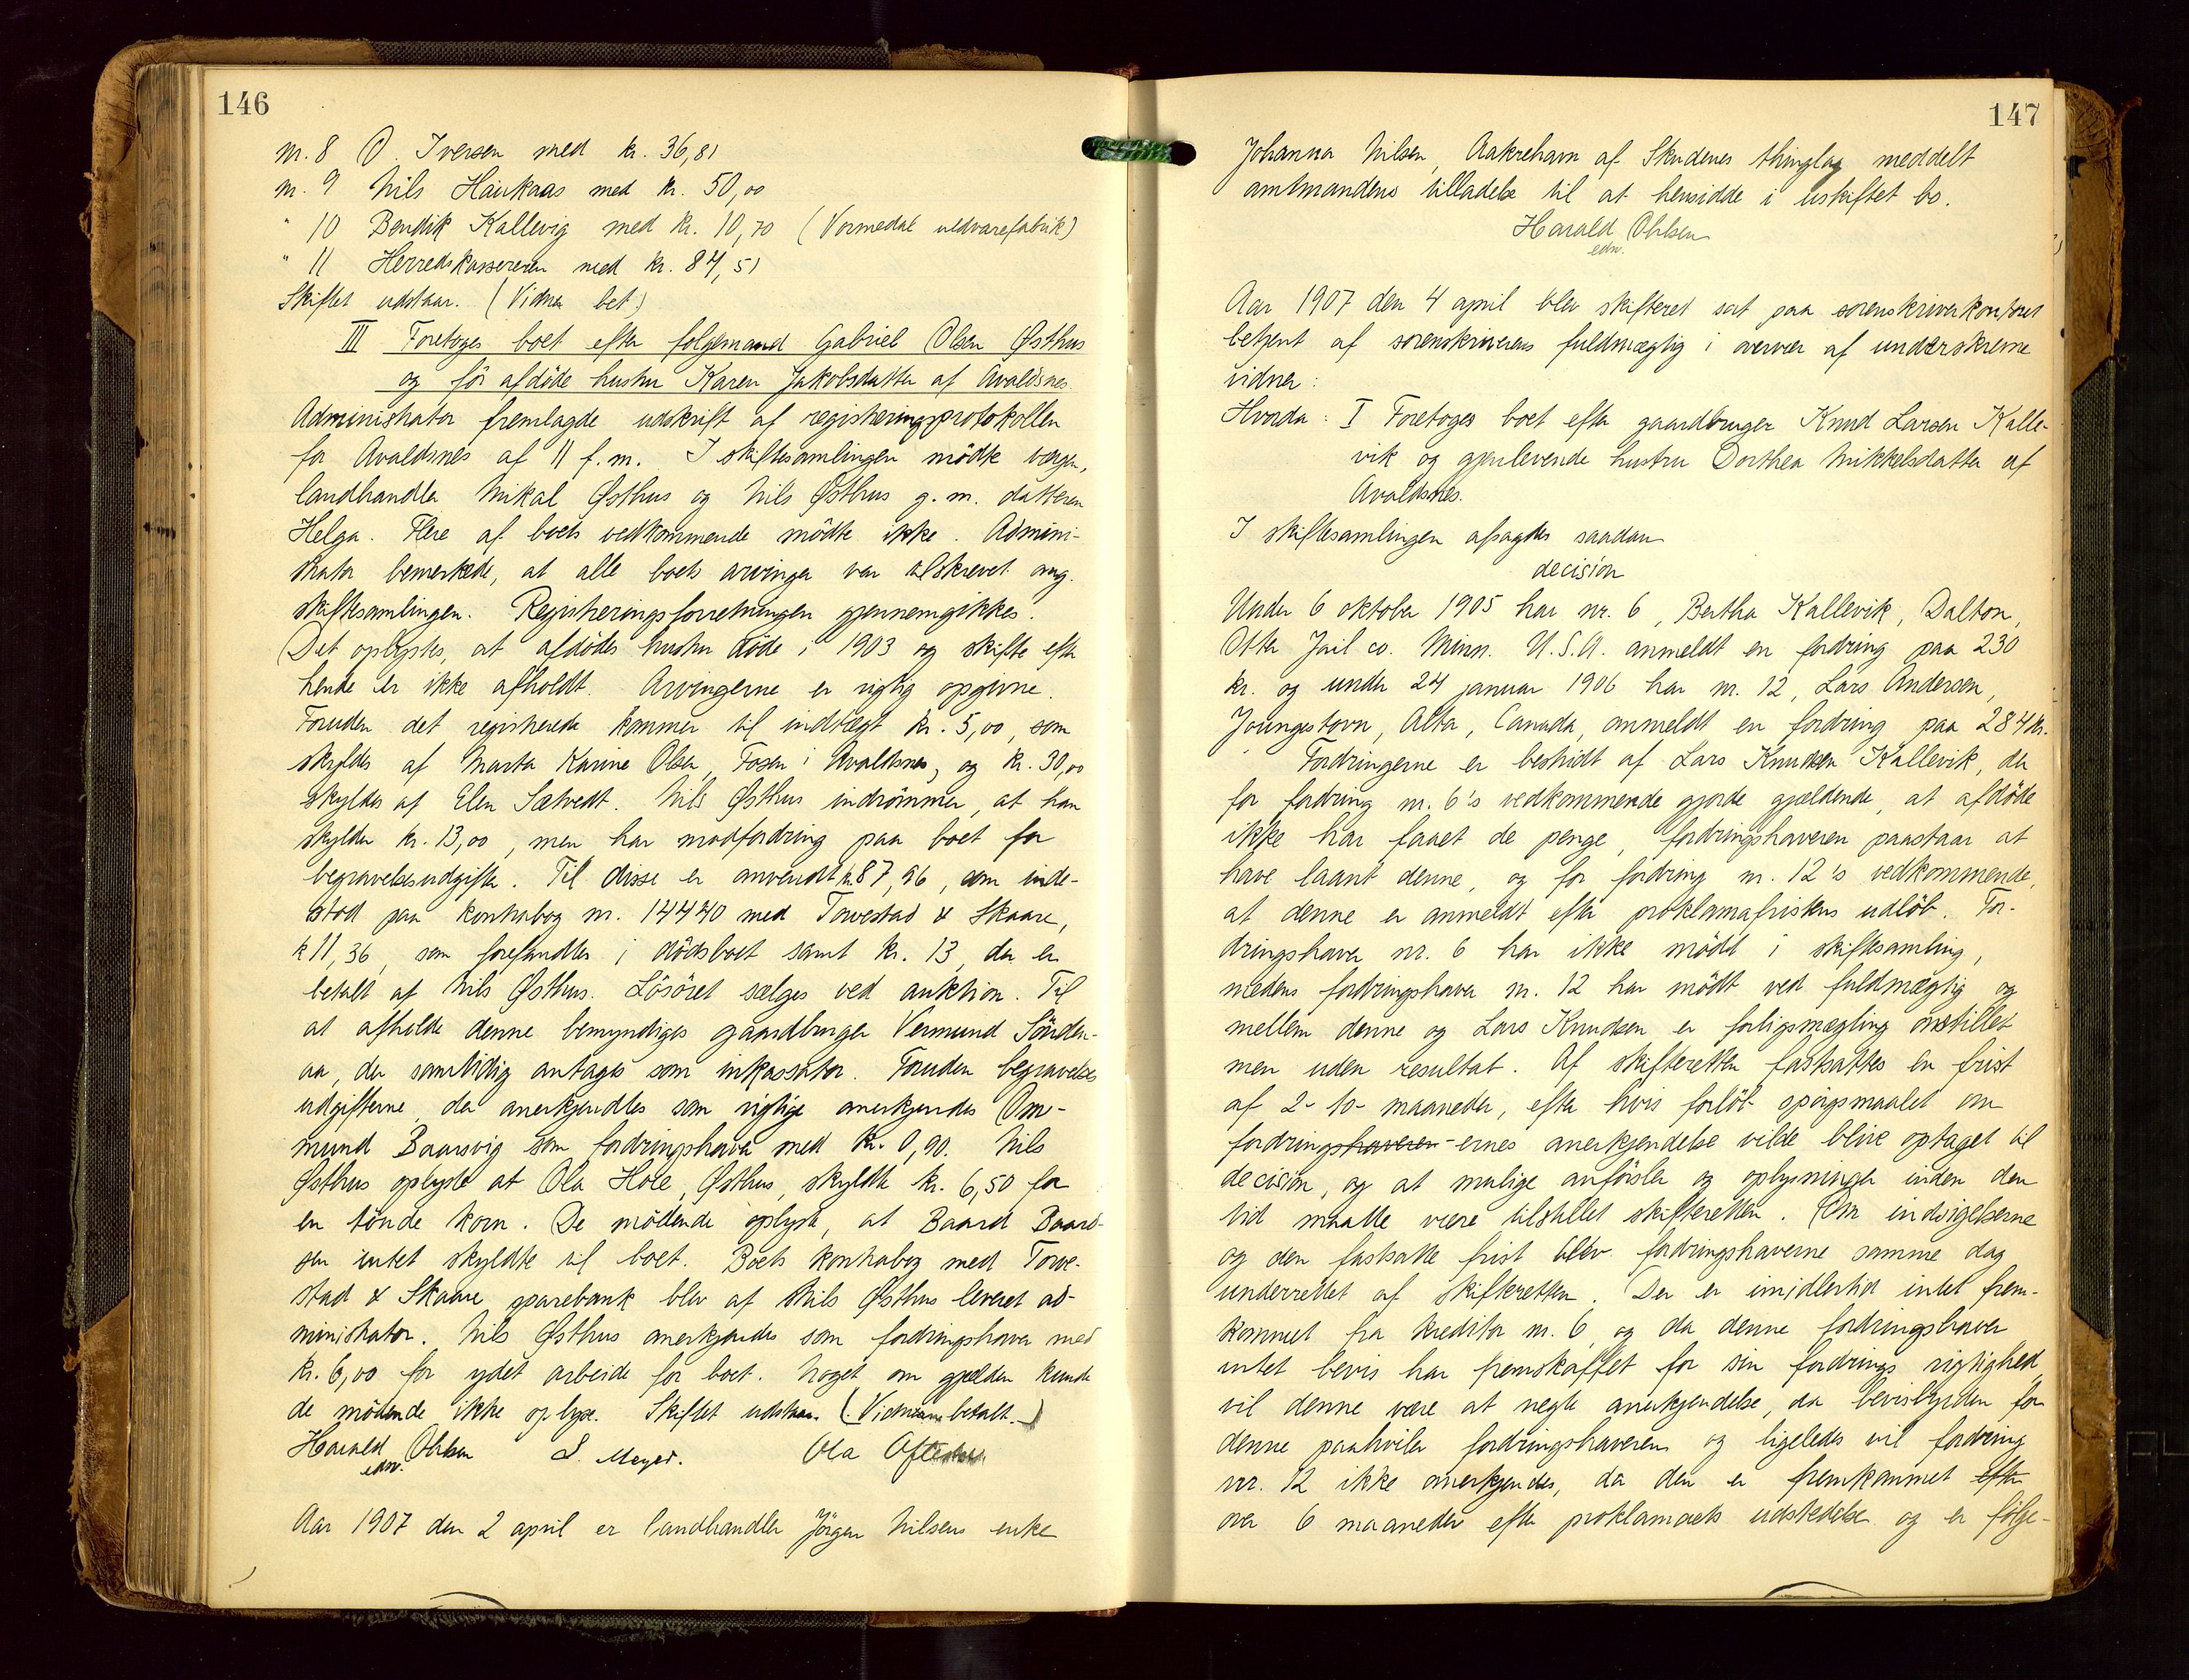 146
nr. 8 O. Iversen med kr. 36,81
nr. 9 Nils Haukaas med kr. 50,00
" 10 Bendik Kallevig med kr. 10,70 (Vormedal uldvarefabrik)
" 11 Herredskassereren med kr. 87,51
Skiftet udstaar. (Vidner bet.)
III Foretoges boet efter følgemand Gabriel Olsen Østhus
og før afdøde hustru Karen Jakobsdatter af Avaldsnes.
Administrator fremlagde udskrift af registreringsprotokollen
for Avaldsnes af 11 f.m. I skiftesamlingen mødte vergen,
landhandler Mikal Østhus og Nils Østhus g.m. datteren
Helga. Flere af boets vedkommende mødte ikke. Admini-
strator bemerkede, at alle boets arvinger var tilskrevet ang.
skiftesamlingen. Registreringsforretningen gjennemgikkes.
Det oplystes, at afdødes hustru døde i 1903 og skifte efter
hende er ikke afholdt. Arvingerne er rigtig opgivne.
Foruden det registrerede kommer til indtægt kr. 5,00, som
skyldes af Marta Karine Olsen, Fosen i Avaldsnes, og kr. 30,00
skyldes af Elen Sætvedt. Nils Østhus indrømmer, at han
skylder kr. 13,00, men har modfordring paa boet for
begravelsesudgifter. Til disse er anvendt kr. 87,96, som inde-
stod paa kontrabog nr. 14440 med Torvestad & Skaare,
k 11,36, som forefandtes i dødsboet samt kr. 13, der er
betalt af Nils Østhus. Løsøret sælges ved auktion. Til
at afholde denne bemyndiges gaardbruger Vermund Sørden-
aa, der samtidig antages som inkassator. Foruden begravelses
udgifterne, der anerkjendtes som rigtige anerkjendes Om-
mund Baarsvig som fordringshaver med kr. 0,90. Nils
Østhus oplyste at Ola Hole, Østhus, skyldte kr. 6,50 for
en tønde korn. De mødende oplyste, at Baard Baard-
sen intet skyldte til boet. Boets kontrabog med Torve-
stad & Skaare sparebank blev af Nils Østhus leveret ad-
ministrator. Nils Østhus anerkjendes som fordringshaver med
kr. 6,00 for ydet arbeide for boet. Noget om gjælden kunde
de mødende ikke oplyse. Skiftet udstaar. (Vidnerne betalt.)
Harald Ohlsen S. Meyer. Ola
edsv.
Aar 1907 den 2 april er landhandler Jørgen Nilsens enke
147
Johanna Nilsen, Aakrehavn af Skudenes thinglag meddelt
amtmandens tilladelse til at hensidde i uskiftet bo.
Harald Ohlsen
edsv.
Aar 1907 den 4 april blev skifteret sat paa sorenskriverkontoret
betjent af sorenskriverens fuldmægtig i overvær af underskrevne
vidner:
Hvorda: I Foretoges boet efter gaardbruger Knud Larsen Kalle-
vik og gjenlevende hustru Dorthea Mikkelsdatter af
Avaldsnes.
I skiftesamlingen afsagdes saadan
decision
Under 6 oktober 1905 har nr. 6, Bertha Kallevik, Dalton,
Otter Jail co. Minn. U.S.A. anmeldt en fordring paa 230
kr. og under 24 januar 1906 har nr. 12, Lars Andersen,
Joungstovn, Alta, Canada, anmeldt en fordring paa 284 kr.
Fordringerne er bestridt af Lars Knudsen Kallevik, der
for fordring nr. 6's vedkommende gjorde gjældende, at afdøde
ikke har faaet de penge, fordringshaveren paastaar at
have laant denne, og for fordring nr. 12's vedkommende,
at denne er anmeldt efter proklamafristens udløb. For-
dringshaver nr. 6 har ikke mødt i skiftesamling,
medens fordringshaver nr. 12 har mødt ved fuldmægtig og
mellem denne og Lars Knudsen er forligsmægling anstillet
men uden resultat. Af skifteretten fastsattes en frist
af 2-to-maaneder, efter hvis forløb spørgsmaalet om
fordringshaveren-ernes anerkjendelse vilde blive optaget til
decision, og at mulige anførsler og oplysninger inden den
tid maatte være tilstillet skifteretten. Om indsigelserne
og den fastsatte frist blev fordringshaverne samme dag
underrettet af skifteretten. Der er imidlertid intet frem-
kommet fra kreditor nr. 6 og da denne fordringshaver
intet bevis har fremskaffet for sin fordrings rigtighed,
vil denne være at negte anerkjendelse, da bevisbyrden for
denne paahviler fordringshaveren og ligeledes vil fordring
nr. 12 ikke anerkjendes, da den er fremkommet efter
over 6 maaneder efter proklamaets udstedelse og er følge-